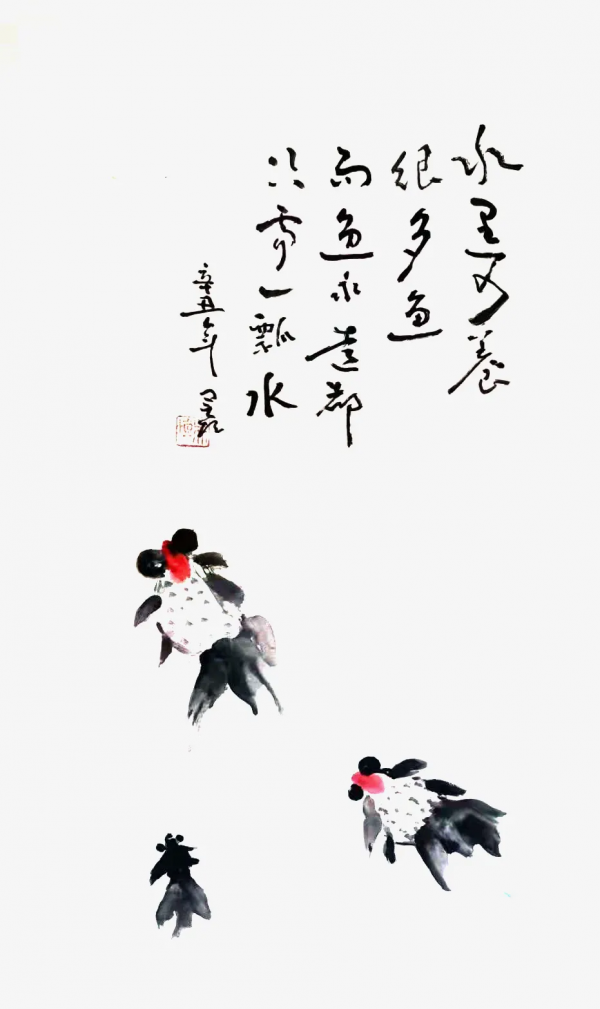 水里可养
很多鱼
而鱼永远都
只需一瓢水
辛丑年